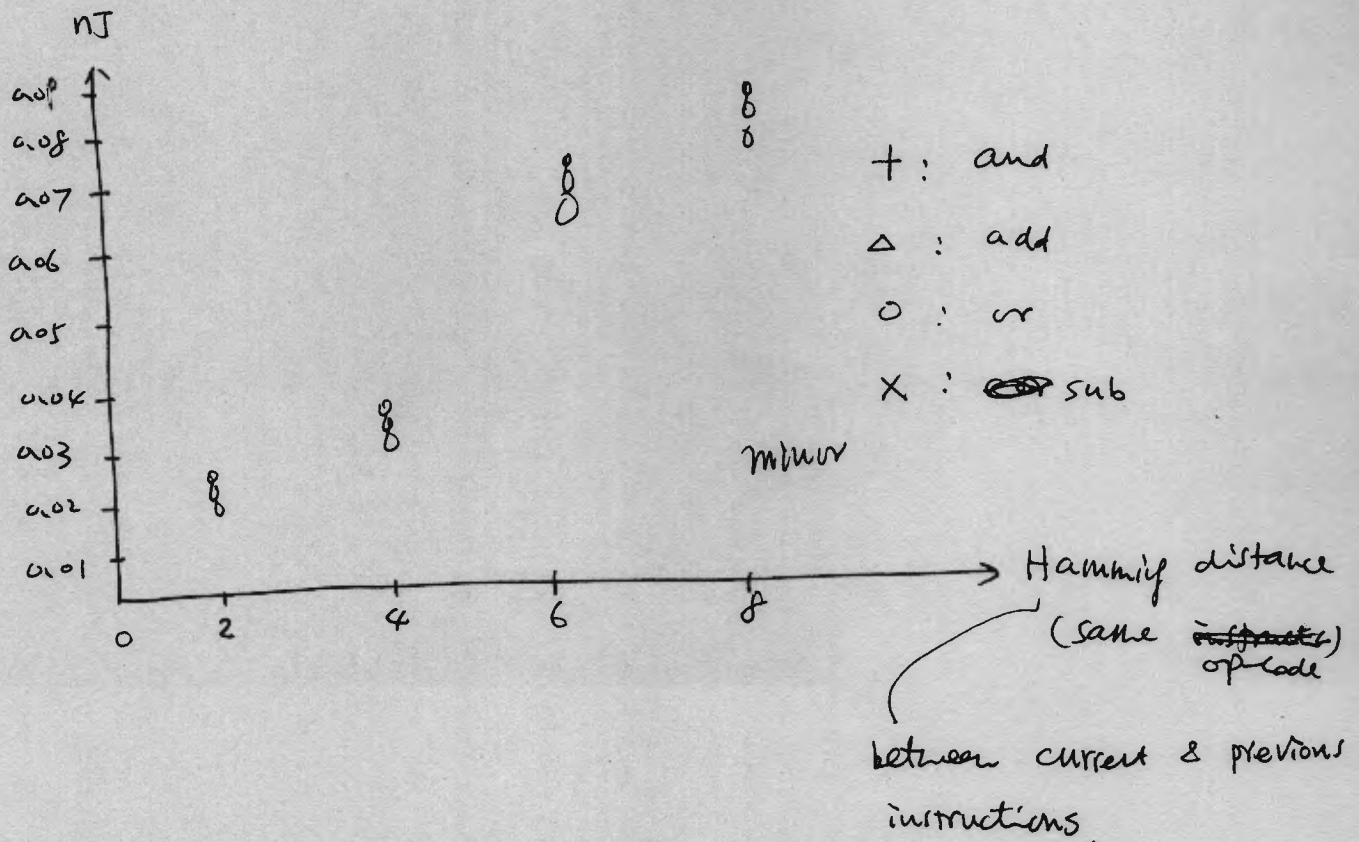 nJ
0.09
0.08
0.07
0.06
0.05
0.04
0.03
0.02
0.01
0 2 4 6 8
+ : and
△ : add
o : or
x : sub
minor
Hammig distance
(same instructs)
op-code
between current & previous
instructions